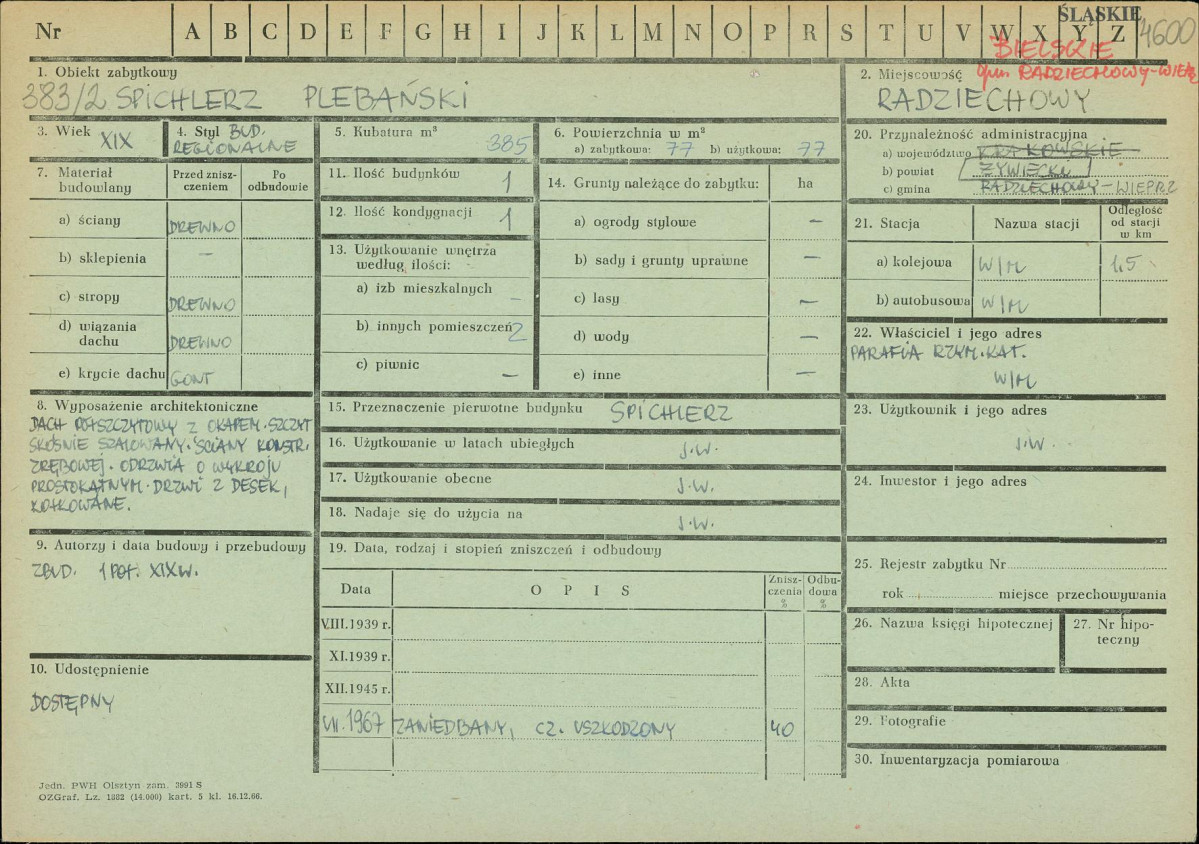 ŚLĄSKIE
4600
Nr A B C D E F G H I J K L M N O P R S T U V W X Y Z
BIELSKIE
gm. RADZIECHOWY-WIEPRZ
1. Obiekt zabytkowy
383/2 SPICHLERZ PLEBAŃSKI
2. Miejscowość
RADZIECHOWY
3. Wiek XIX
4. Styl BUD.
REGIONALNE
5. Kubatura m³
385
6. Powierzchnia w m²
a) zabytkowa: 77 b) użytkowa: 77
7. Materiał budowlany
Przed zniszczeniem
Po odbudowie
a) ściany DREWNO
b) sklepienia —
c) stropy DREWNO
d) wiązania dachu DREWNO
e) krycie dachu GONT
8. Wyposażenie architektoniczne
DACH PÓŁSZCZYTOWY Z OKAPEM. SZCZYT
SKOŚNIE SZALOWANY. ŚCIANY KONSTR.
ZRĘBOWEJ. ODRZWIA O WYKROJU
PROSTOKĄTNYM. DRZWI Z DESEK,
KOŁKOWANE.
9. Autorzy i data budowy i przebudowy
ZBUD. 1 POŁ. XIX W.
10. Udostępnienie
DOSTĘPNY
11. Ilość budynków 1
12. Ilość kondygnacji 1
13. Użytkowanie wnętrza
według ilości:
a) izb mieszkalnych –
b) innych pomieszczeń 2
c) piwnic —
14. Grunty należące do zabytku: ha
a) ogrody stylowe —
b) sady i grunty uprawne —
c) lasy —
d) wody —
e) inne —
15. Przeznaczenie pierwotne budynku SPICHLERZ
16. Użytkowanie w latach ubiegłych J.W.
17. Użytkowanie obecne J.W.
18. Nadaje się do użycia na J.W.
19. Data, rodzaj i stopień zniszczeń i odbudowy
Data O P I S Zniszczenia % Odbudowa %
VIII.1939 r.
XI.1939 r.
XII.1945 r.
VII.1967 ZANIEDBANY, CZ. USZKODZONY 40
20. Przynależność administracyjna
a) województwo KRAKOWSKIE
b) powiat ŻYWIECKI
c) gmina RADZIECHOWY-WIEPRZ
21. Stacja Nazwa stacji Odległość od stacji w km
a) kolejowa W/M 1,5
b) autobusowa W/M
22. Właściciel i jego adres
PARAFIA RZYM. KAT.
W/M
23. Użytkownik i jego adres
J.W.
24. Inwestor i jego adres
25. Rejestr zabytku Nr
rok miejsce przechowywania
26. Nazwa księgi hipotecznej
27. Nr hipoteczny
28. Akta
29. Fotografie
30. Inwentaryzacja pomiarowa
Jedn. PWH Olsztyn zam. 3991 S
OZGraf. Lz. 1882 (14.000) kart. 5 kl. 16.12.66.